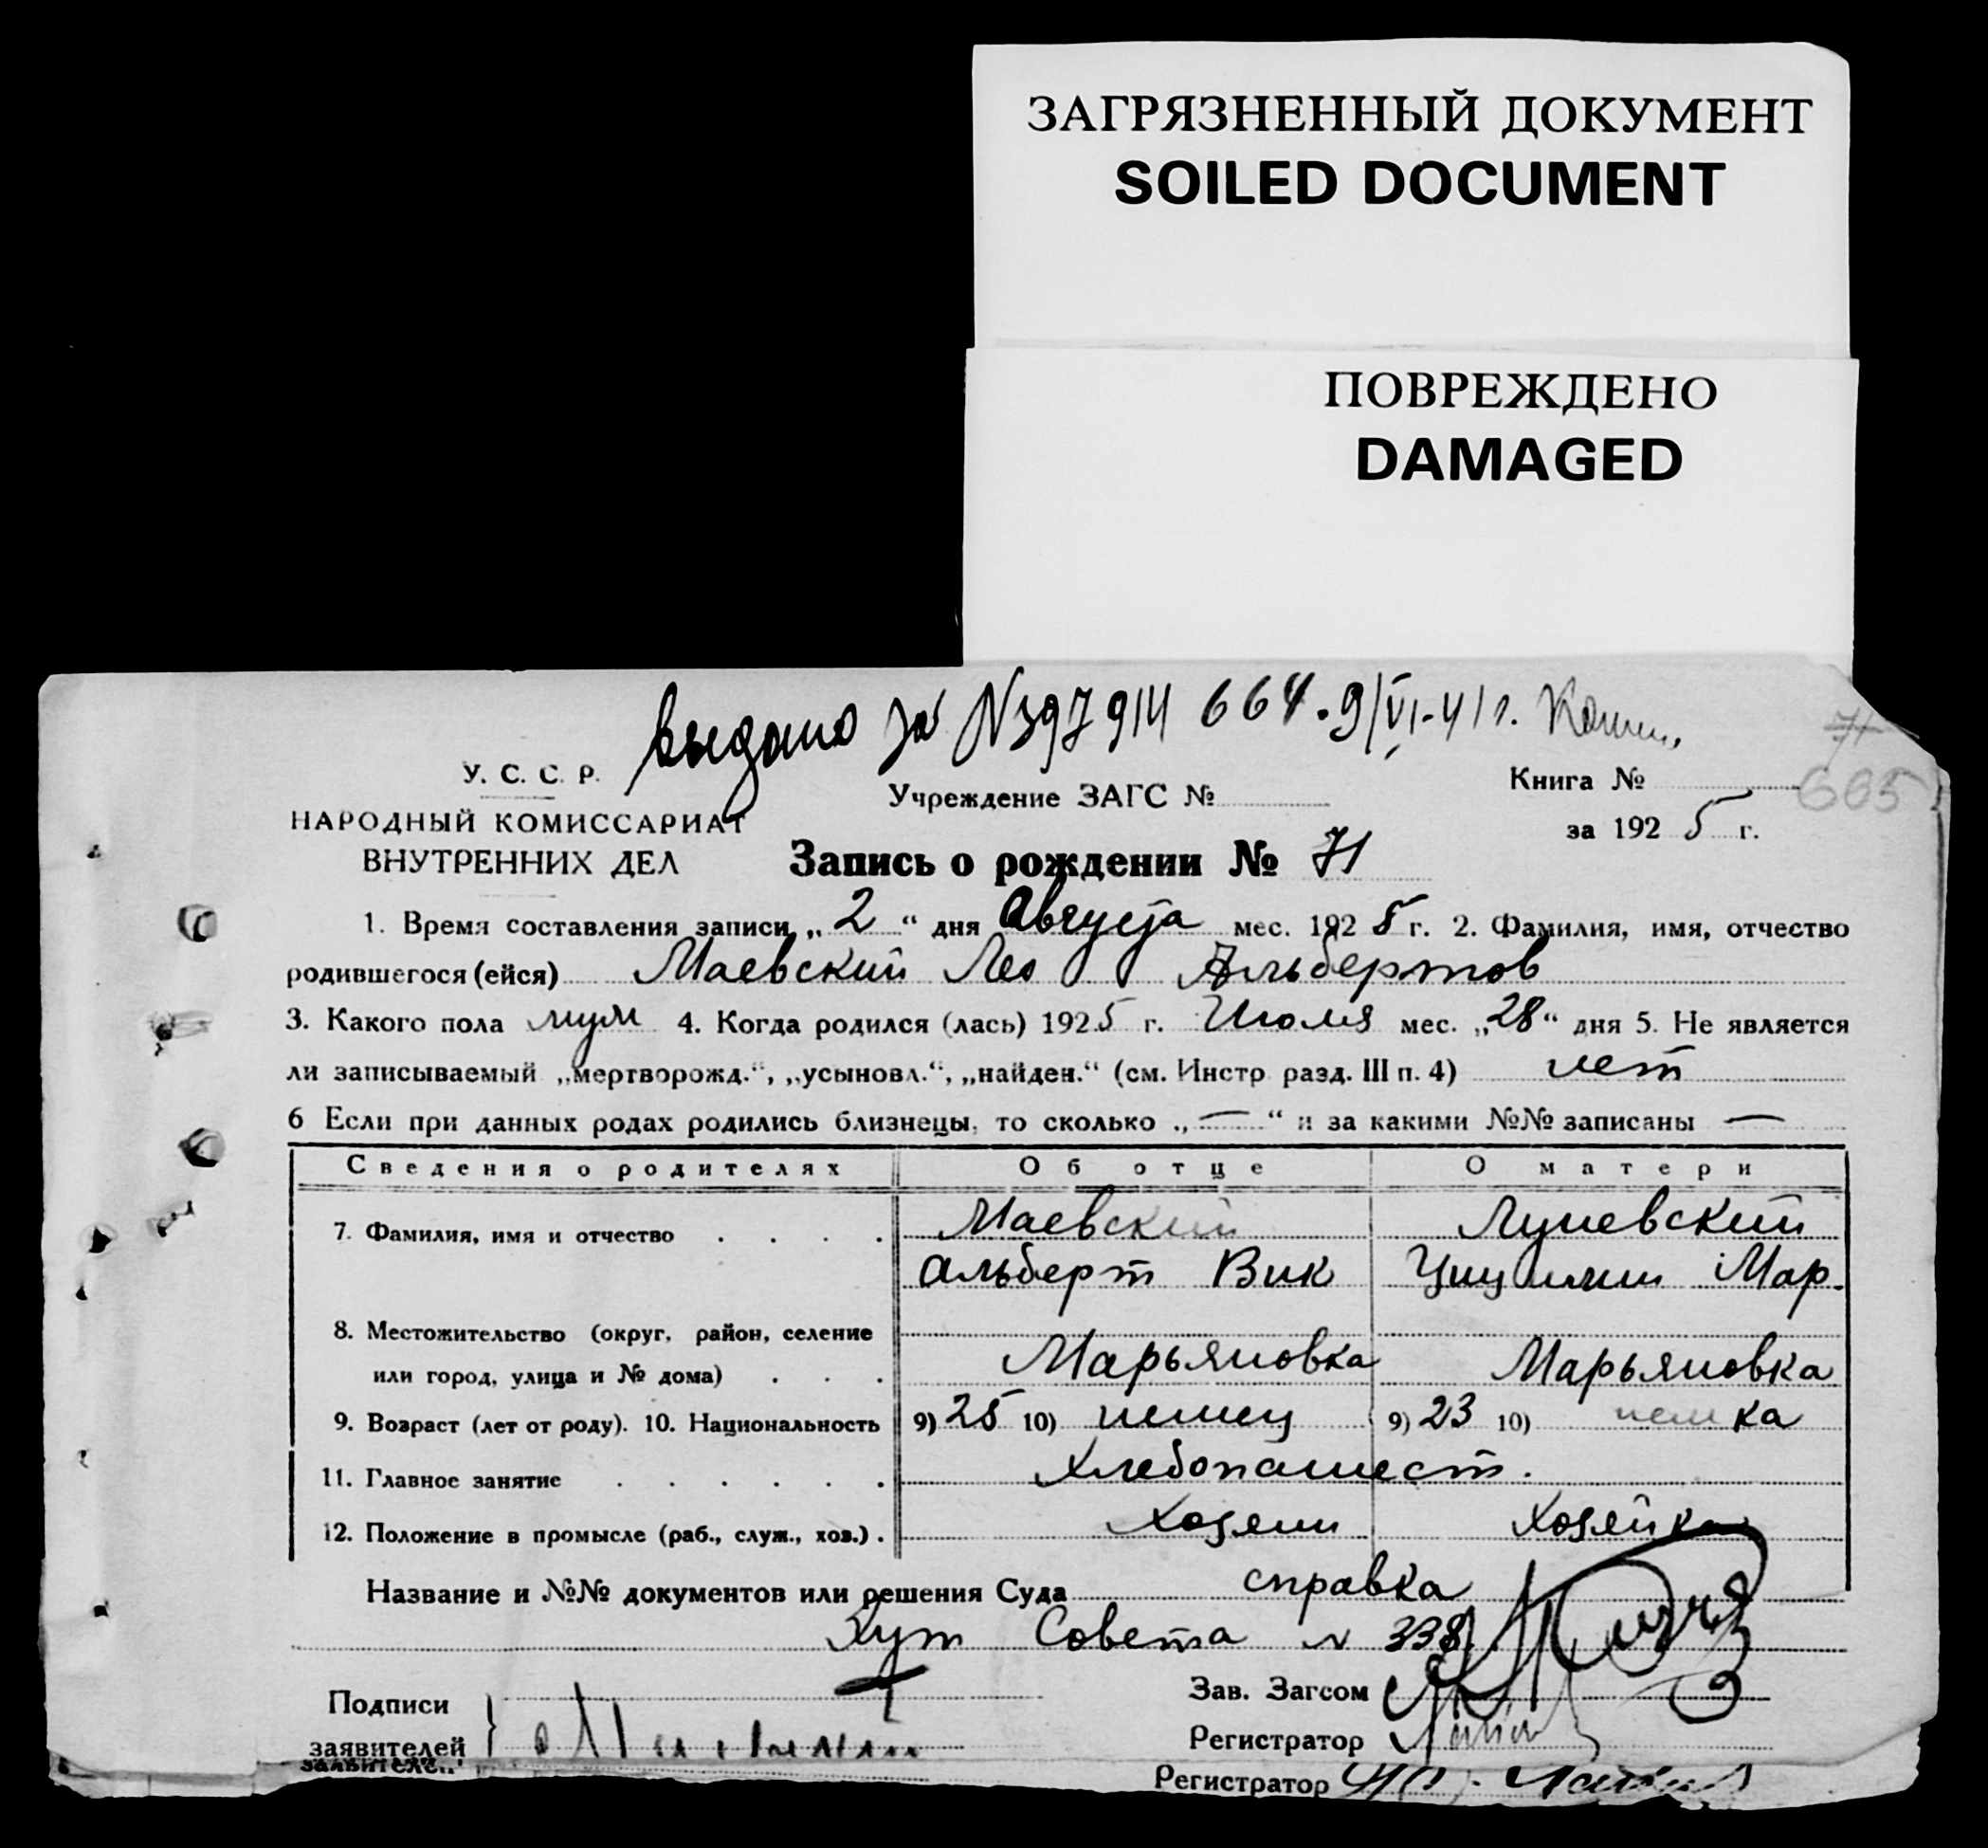 ЗАГРЯЗНЕННЫЙ ДОКУМЕНТ
SOILED DOCUMENT
ПОВРЕЖДЕНО
DAMAGED
выдано за N397914 664. 9/VI-41г.
71
665
У. С. С. Р.
НАРОДНЫЙ КОМИССАРИАТ
ВНУТРЕННИХ ДЕЛ
Учреждение ЗАГС №
Книга №
за 1925 г.
Запись о рождении № 71
1. Время составления записи „2“ дня Августа мес. 1925 г. 2. Фамилия, имя, отчество
родившегося (ейся) Маевский Лео Альбертов
3. Какого пола муж 4. Когда родился (лась) 1925 г. Июля мес. „28“ дня 5. Не является
ли записываемый „мертворожд.“, „усыновл.“, „найден.“ (см. Инстр разд. III п. 4) нет
6 Если при данных родах родились близнецы, то сколько „—“ и за какими №№ записаны —
Сведения о родителях Об отце О матери
7. Фамилия, имя и отчество Маевский
Альберт Вик Мар.
8. Местожительство (округ, район, селение
или город, улица и № дома) Марьяновка Марьяновка
9. Возраст (лет от роду). 10. Национальность 9) 25 10) немец 9) 23 10) немка
11. Главное занятие Хлебопашест.
12. Положение в промысле (раб., служ., хоз.) Хозяин Хозяйка
Название и №№ документов или решения Суда справка
Хут Совета N 338
Подписи
заявителей
Зав. Загсом
Регистратор
заявителей
Регистратор